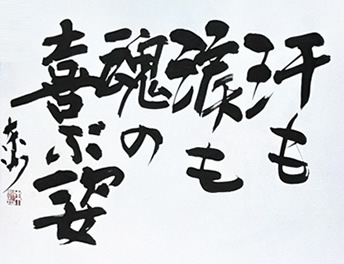 汗も
涙も
魂の
喜ぶ姿